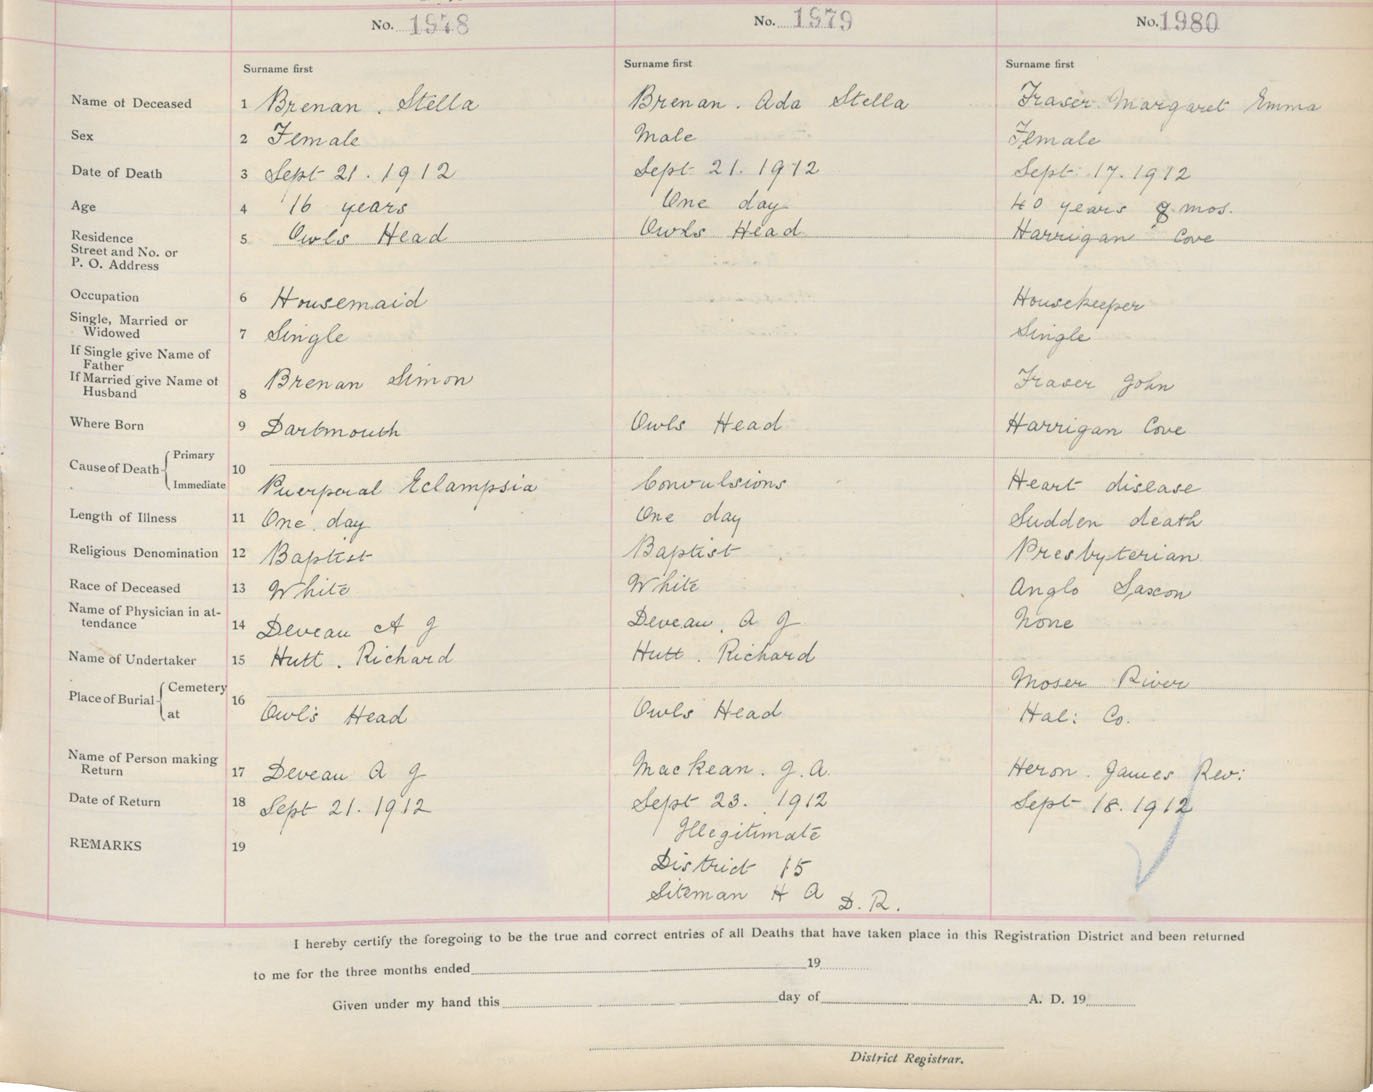 No. 1978 No. 1979 No. 1980
Surname first Surname first Surname first
Name of Deceased 1 Brenan. Stella Brenan. Ada Stella Fraser. Margaret Emma
Sex 2 Female Male Female
Date of Death 3 Sept 21. 1912 Sept 21. 1912 Sept. 17. 1912
Age 4 16 years One day 40 years 8 mos.
Residence
Street and No. or
P. O. Address 5 Owls Head Owls Head Harrigan Cove
Occupation 6 Housemaid Housekeeper
Single, Married or
Widowed 7 Single Single
If Single give Name of
Father
If Married give Name of
Husband 8 Brenan Simon Fraser John
Where Born 9 Dartmouth Owls Head Harrigan Cove
Cause of Death Primary
Immediate 10 Puerperal Eclampsia Convulsions Heart disease
Length of Illness 11 One day One day Sudden death
Religious Denomination 12 Baptist Baptist Presbyterian
Race of Deceased 13 White White Anglo Saxon
Name of Physician in at-
tendance 14 Deveau A J Deveau. A J None
Name of Undertaker 15 Hutt. Richard Hutt. Richard
Place of Burial Cemetery 16 Moser River
at Owl's Head Owls Head Hal: Co.
Name of Person making
Return 17 Deveau A J MacKean. J. A. Heron. James Rev:
Date of Return 18 Sept 21. 1912 Sept 23. 1912 Sept 18. 1912
REMARKS 19 Illegitimate
District 15
Siteman H A D. R.
I hereby certify the foregoing to be the true and correct entries of all Deaths that have taken place in this Registration District and been returned
to me for the three months ended 19
Given under my hand this day of A. D. 19
District Registrar.